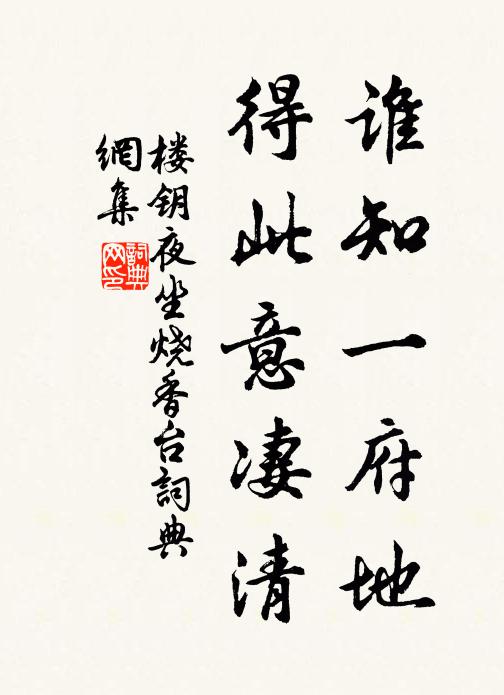 谁知一府地
得此意凄清
楼钥夜坐烧香台詞典
網集
詞典
网印